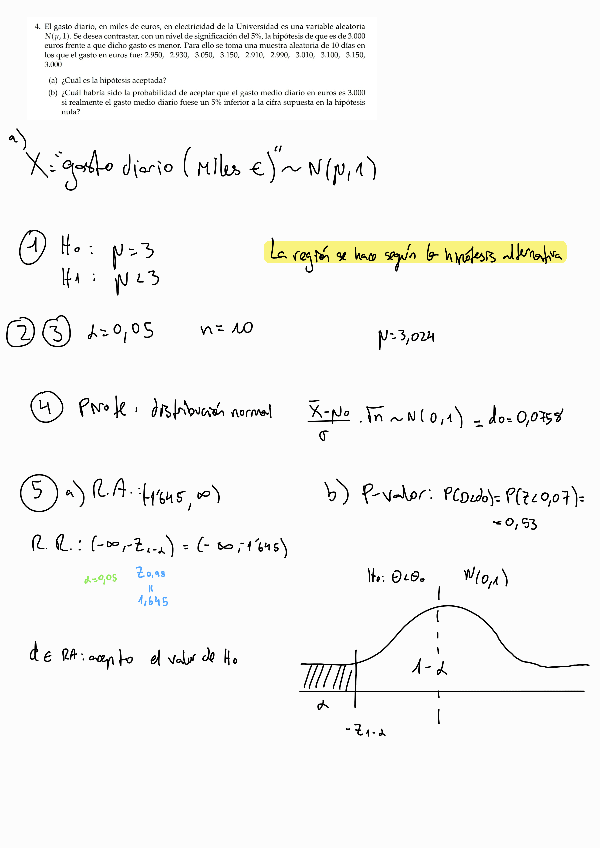 4. El gasto diario, en miles de euros, en electricidad de la Universidad es una variable aleatoria
N(μ, 1). Se desea contrastar, con un nivel de significación del 5%, la hipótesis de que es de 3.000
euros frente a que dicho gasto es menor. Para ello se toma una muestra aleatoria de 10 días en
los que el gasto en euros fue: 2.950, 2.930, 3.050, 3.150, 2.910, 2.990, 3.010, 3.100, 3.150,
3.000
(a) ¿Cuál es la hipótesis aceptada?
(b) ¿Cuál habría sido la probabilidad de aceptar que el gasto medio diario en euros es 3.000
si realmente el gasto medio diario fuese un 5% inferior a la cifra supuesta en la hipótesis
nula?
a)
X="gasto diario (Miles €)" ~ N(μ,1)
① H₀: μ=3
H1: μ<3
La región se hace según la hipótesis alternativa
② ③ α=0,05 n=10
μ=3,024
④ distribución normal (X̄-μ₀)/σ · √n ~ N(0,1) = d₀=0,0758
⑤ a) R.A.: (-1'645, ∞)
b) P-valor: P(D<d₀)= P(Z<0,07)=
=0,53
R.R.: (-∞, -Z₁₋α) = (-∞, -1'645)
α=0,05 Z₀,₉₈
=
1,645
H₀: Θ<Θ₀ N(0,1)
d ∈ RA: acepto el valor de H₀
1-α
α
-Z₁₋α